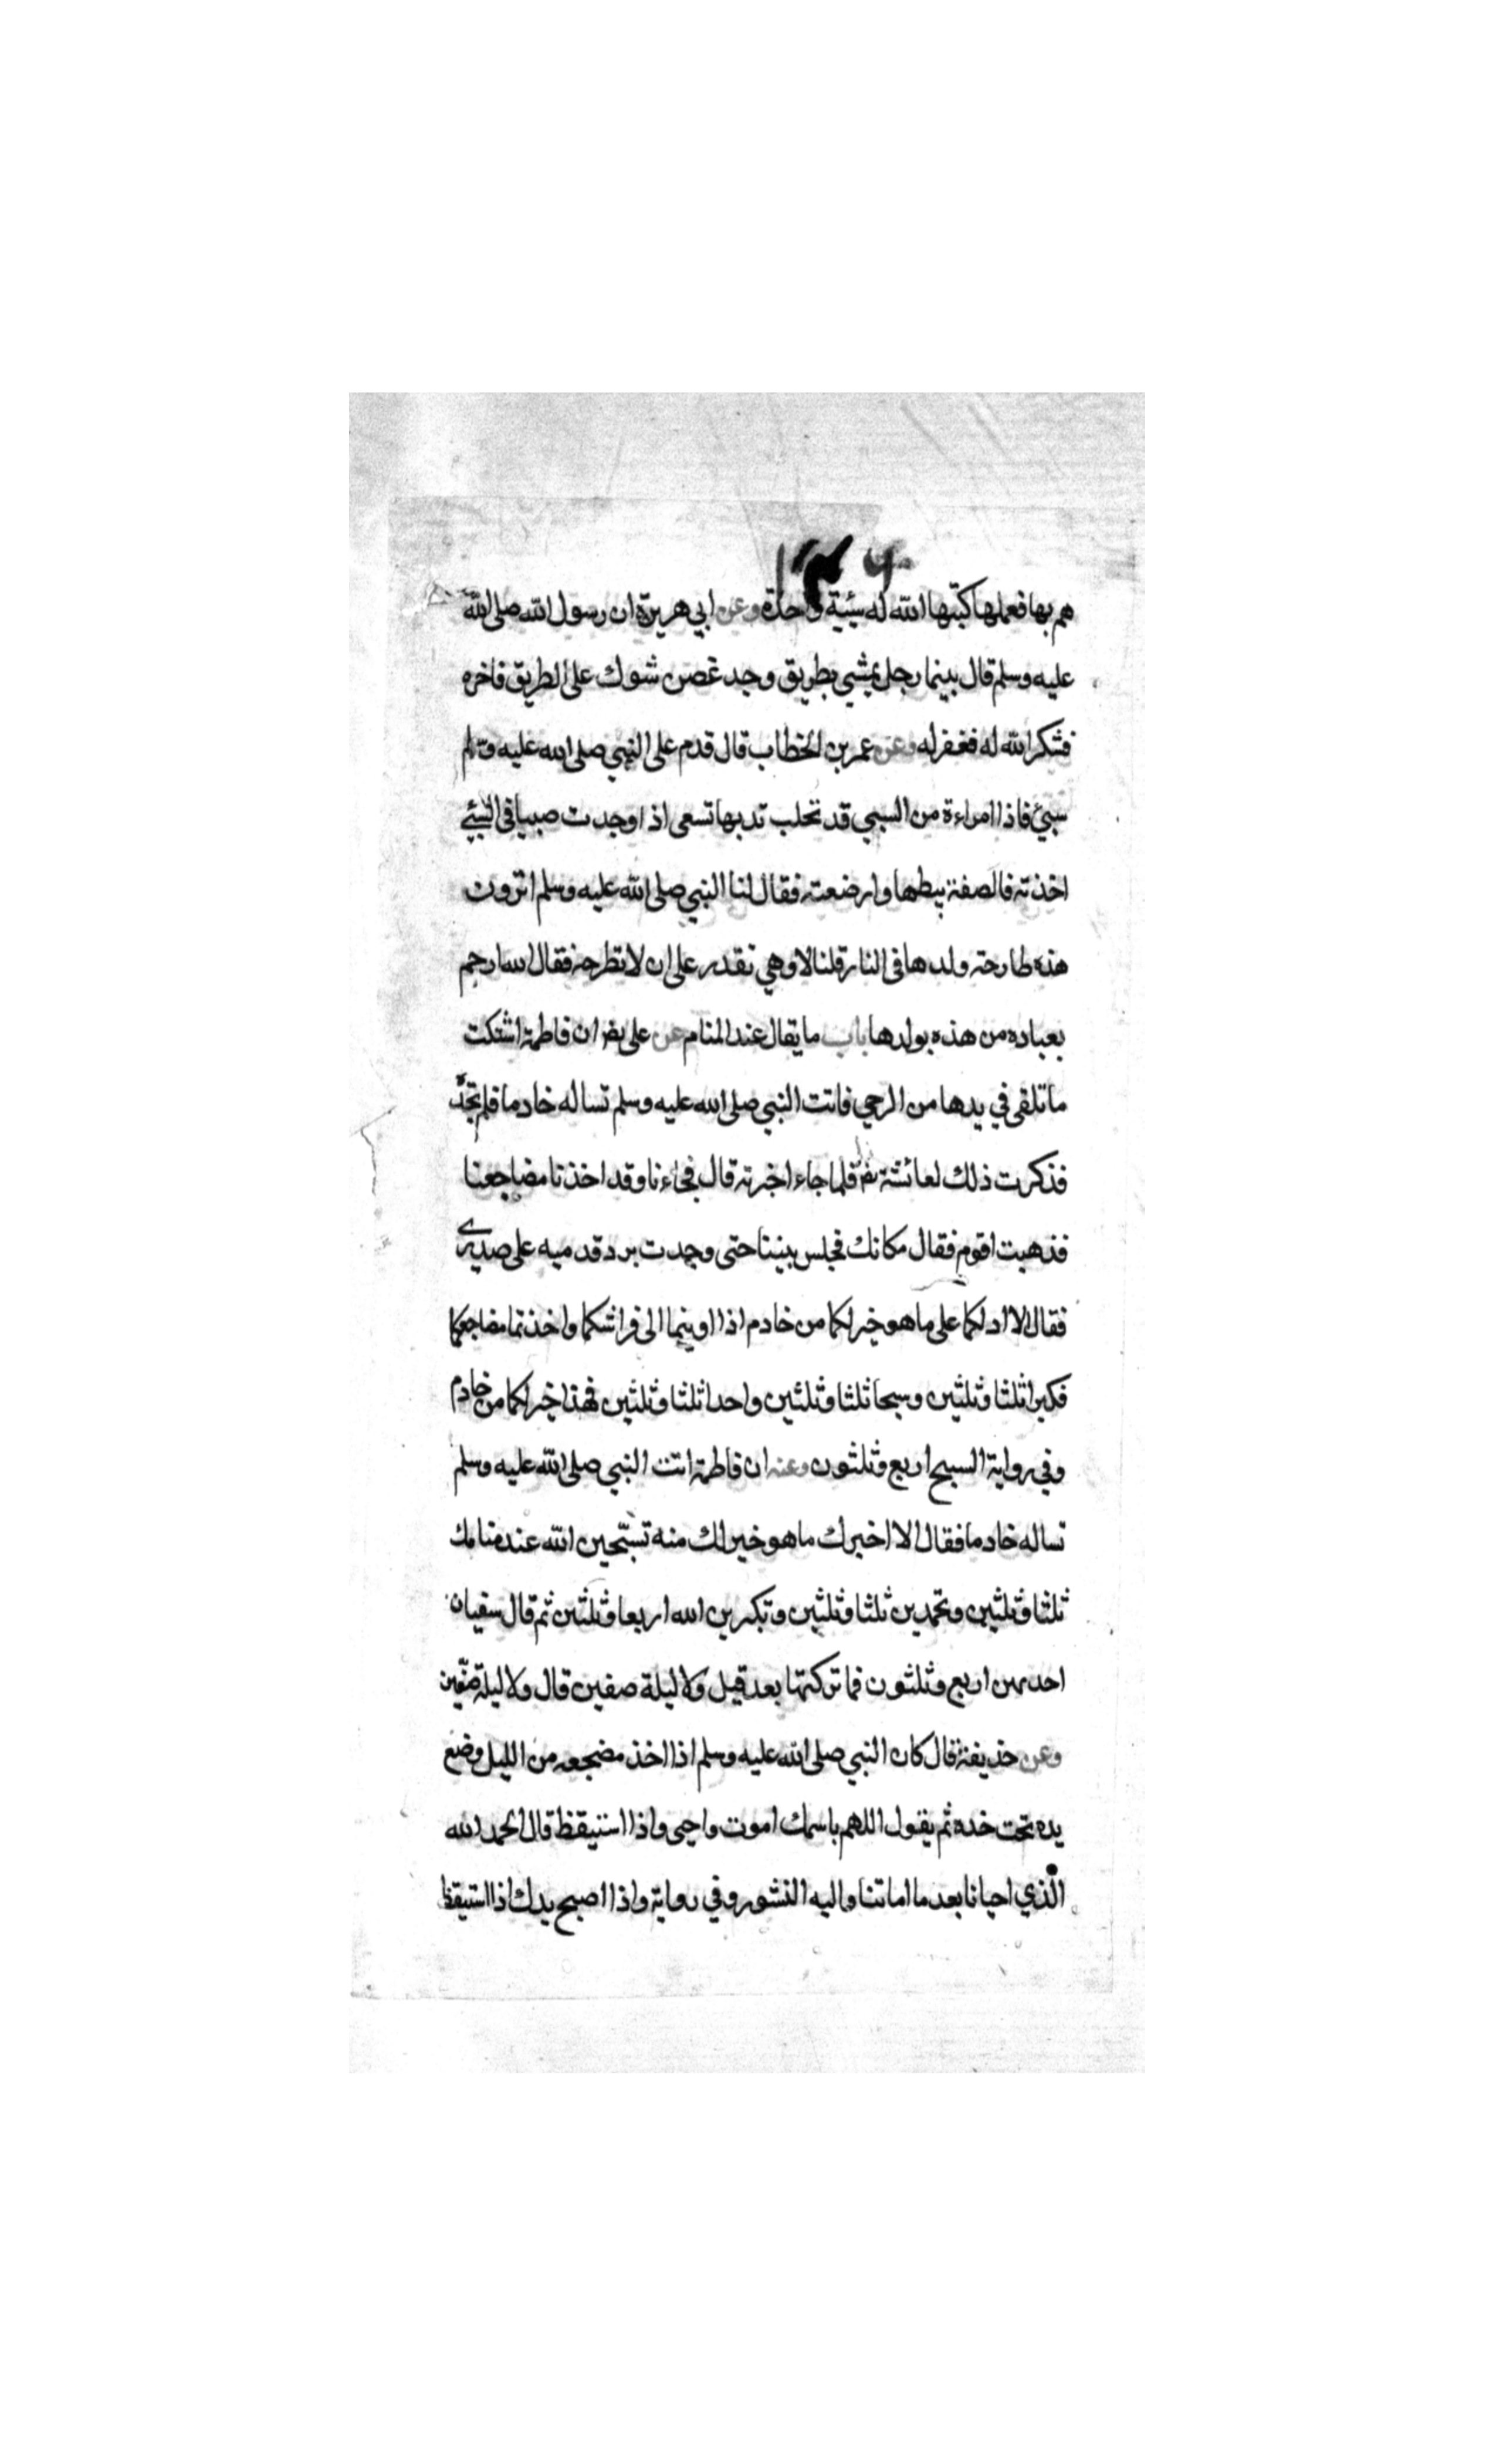 هم بها فعملها كتبها الله له سيئية واحدة وعن ابي هريرة ان رسول الله صلى الله
عليه وسلم قال بينما رجل يمشي بطريق وجد غصن شوك على الطريق فاخره
فشكر الله له فغفر له وعن عمر بن الخطاب قال قدم على النبي صلى الله عليه وسلم
سبي فاذا امراءة من السبي قد تحلب ثديها تسعى اذا وجدت صبيا في السبي
اخذته فالصقته ببطنها وارضعته فقال لنا النبي صلى الله عليه وسلم اترون
هذه طارحته ولدها في النار قلنا لا وهي تقدر على ان لا تطرحه فقال الله ارحم
بعباده من هذه بولدها باب ما يقال عند المنام عن على رضـ ان فاطمة اشتكت
ما تلقى في يدها من الرحي فاتت النبي صلى الله عليه وسلم تساله خادما فلم تجده
فذكرت ذلك لعائشة رضـ فلما جاء اخبرته قال فجاءنا وقد اخذنا مضاجعنا
فذهبت اقوم فقال مكانك فجلس بيننا حتى وجدت برد قدميه على صدري
فقال الا ادلكما على ما هو خير لكما من خادم اذا اويتما الى فراشكما واخذتما مضاجعكما
فكبرا ثلثا وثلثين وسبحا ثلثا وثلثين واحدا ثلثا وثلثين فهذا خير لكما من خادم
وفي رواية السبيح اربع وثلثون وعنه ان فاطمة اتت النبي صلى الله عليه وسلم
تساله خادما فقال الا اخبرك ما هو خير لك منه تسبّحين الله عند منامك
ثلثا وثلثين وتحمدين ثلثا وثلثين وتكبرين الله اربعا وثلثين ثم قال سفيان
احديهن اربع وثلثون فما تركتها بعد قيل ولا ليلة صفين قال ولا ليلة صفّين
وعن حذيفة قال كان النبي صلى الله عليه وسلم اذا اخذ مضجعه من الليل وضع
يده تحت خده ثم يقول اللهم باسمك اموت واحيى واذا استيقظ قال الحمد لله
الذي احيانا بعد ما اماتنا واليه النشور وفي رواية واذا اصبح بدل اذا استيقظ